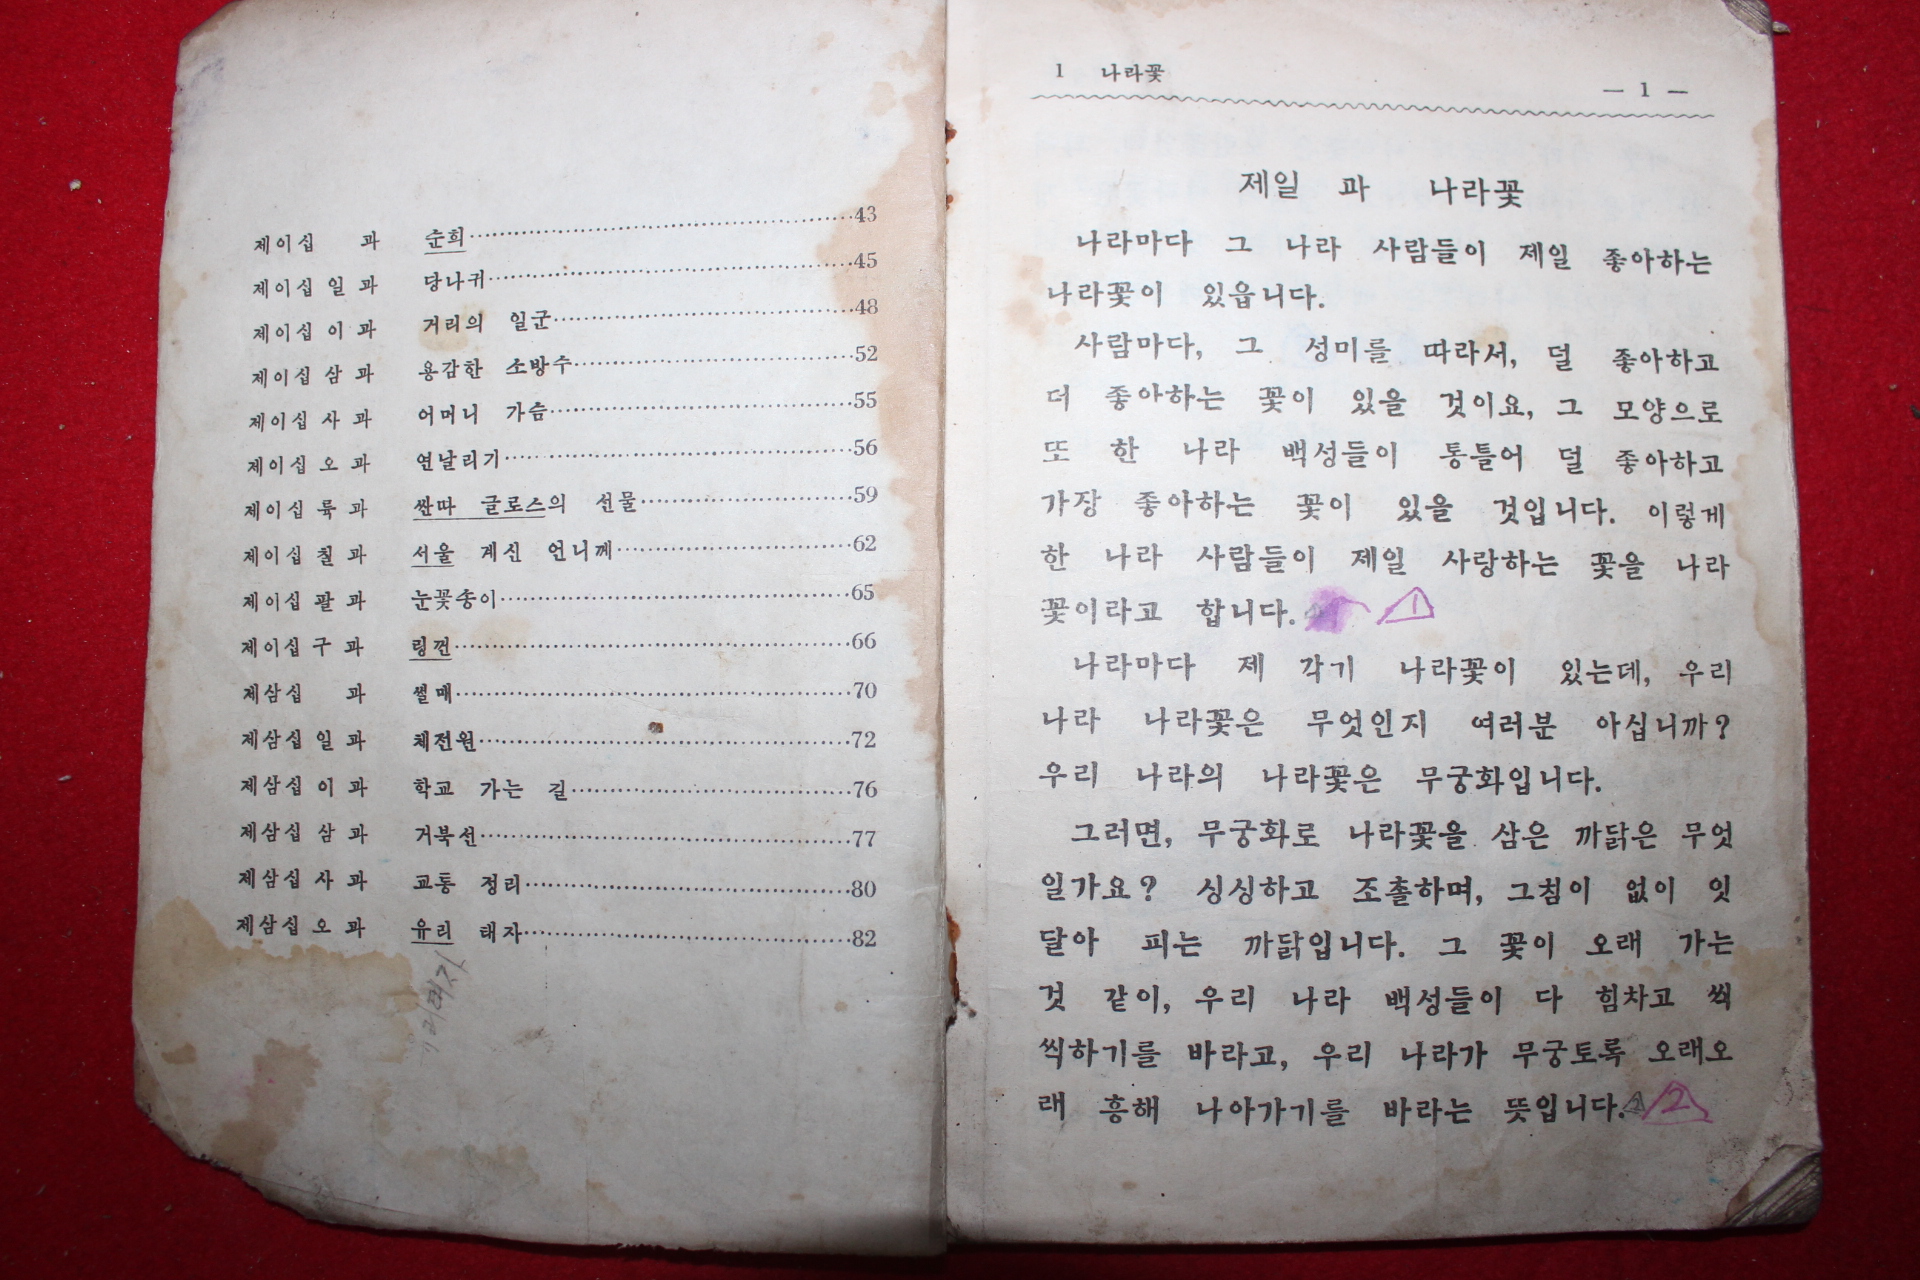 제이십 과 순희 43
제이십일과 당나귀 45
제이십이과 거리의 일군 48
제이십삼과 용감한 소방수 52
제이십사과 어머니 가슴 55
제이십오과 연날리기 56
제이십륙과 싼따 클로스의 선물 59
제이십칠과 서울 계신 언니께 62
제이십팔과 눈꽃송이 65
제이십구과 링껀 66
제삼십 과 썰매 70
제삼십일과 체전원 72
제삼십이과 학교 가는 길 76
제삼십삼과 거북선 77
제삼십사과 교통 정리 80
제삼십오과 유리 태자 82
1 나라꽃
— 1 —
제일 과 나라꽃
나라마다 그 나라 사람들이 제일 좋아하는
나라꽃이 있읍니다.
사람마다, 그 성미를 따라서, 덜 좋아하고
더 좋아하는 꽃이 있을 것이요, 그 모양으로
또 한 나라 백성들이 통틀어 덜 좋아하고
가장 좋아하는 꽃이 있을 것입니다. 이렇게
한 나라 사람들이 제일 사랑하는 꽃을 나라
꽃이라고 합니다. 1
나라마다 제 각기 나라꽃이 있는데, 우리
나라 나라꽃은 무엇인지 여러분 아십니까?
우리 나라의 나라꽃은 무궁화입니다.
그러면, 무궁화로 나라꽃을 삼은 까닭은 무엇
일가요? 싱싱하고 조촐하며, 그침이 없이 잇
달아 피는 까닭입니다. 그 꽃이 오래 가는
것 같이, 우리 나라 백성들이 다 힘차고 씩
씩하기를 바라고, 우리 나라가 무궁토록 오래오
래 흥해 나아가기를 바라는 뜻입니다. 2